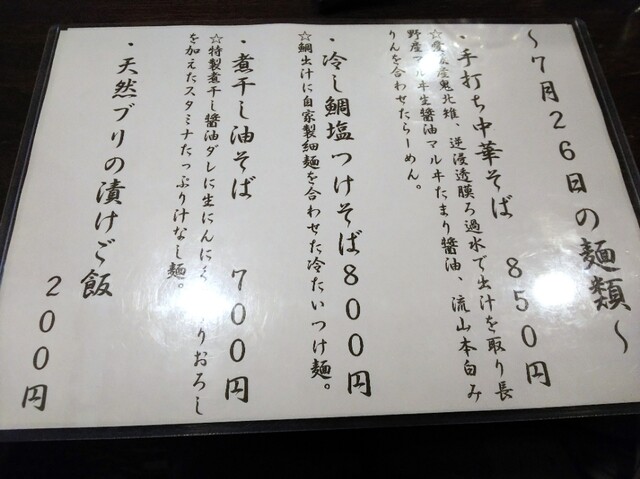 〜7月26日の麺類〜
・手打ち中華そば 850円
産鬼北雉、逆浸透膜ろ過水で出汁を取り長
野産マルヰ生醤油マルヰたまり醤油、流山本白み
りんを合わせたらーめん。
・冷し鯛塩つけそば800円
☆鯛出汁に自家製細麺を合わせた冷たいつけ麺。
・煮干し油そば 700円
☆特製煮干し醤油ダレに生にんにく りおろし
を加えたスタミナたっぷり汁なし麺。
・天然ブリの漬けご飯
200円